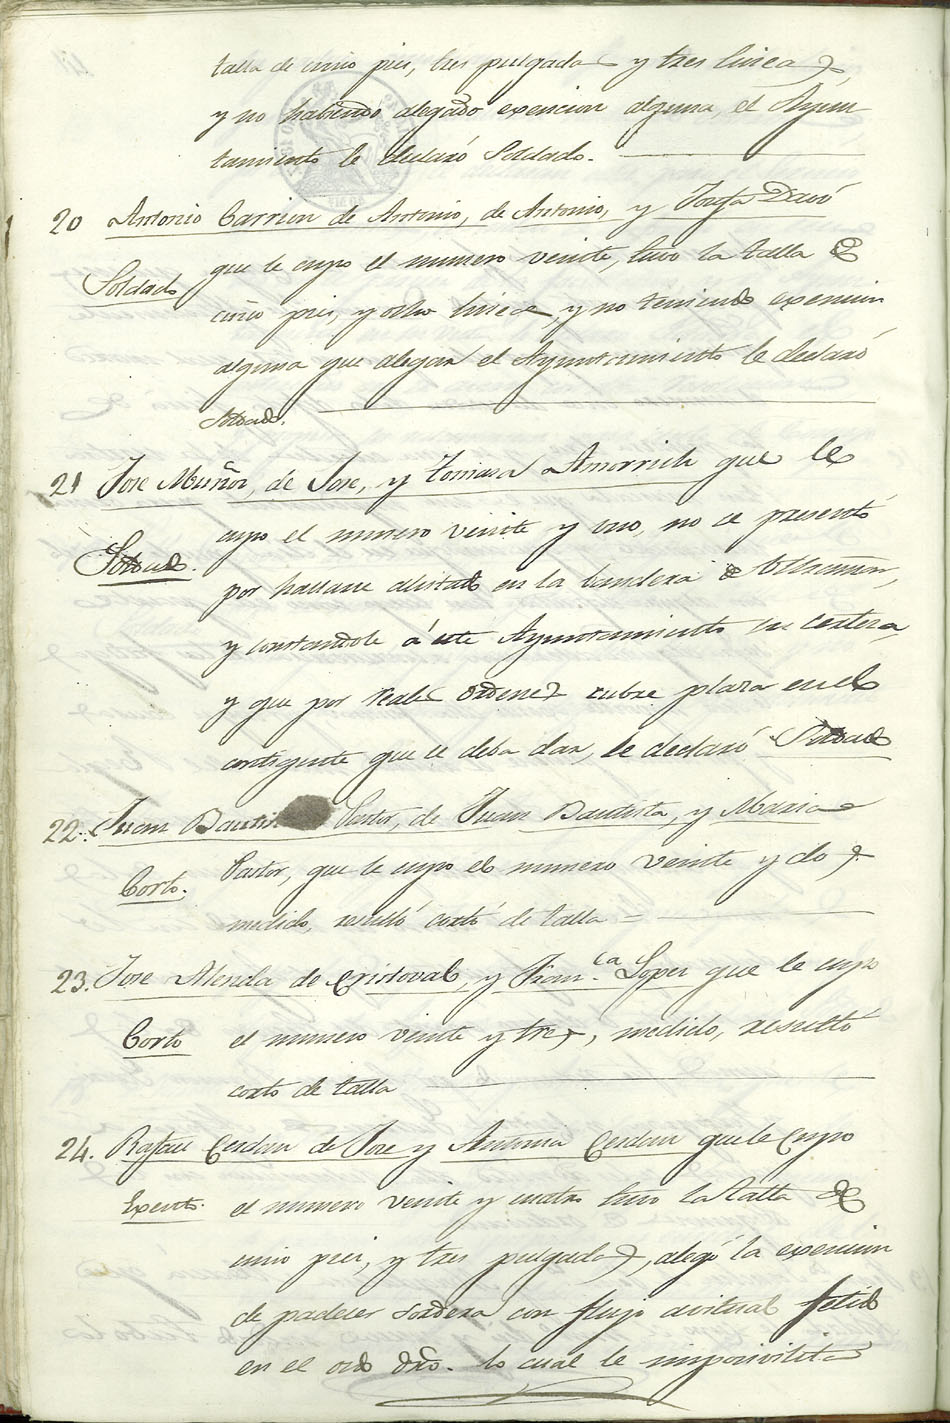 talla de cinco pies, tres pulgadas y tres lineas,
y no habiendo alegado exencion alguna, el Ayun
tamiento le declaró Soldado.
20 Antonio Carrion de Antonio, de Antonio, y Josefa Davó
Soldado
que le cupo el numero veinte, tuvo la talla de
cinco pies, y ocho lineas, y no teniendo exencion
alguna que alegar el Ayuntamiento le declaró
Soldado.
21 Jose Muñoz, de Jose, y Tomasa Amorrich que le
Soldado.
cupo el numero veinte y uno, no se presentó
por hallarse alistado en la bandera de Ultramar,
y constandole á este Ayuntamiento su certeza,
y que por Reales ordenes cubre plaza en el
contigente que se deba dar, le declaró Soldado
22. Juan Bautis Pastor, de Juan Bautista, y Maria
Corto.
Pastor, que le cupo el numero veinte y dos,
medido, resultó corto de talla =
23. Jose Alenda de Cristoval, y Fran.ca Lopez que le cupo
Corto
el numero veinte y tres, medido, resultó
corto de talla
24. Rafael Cerdan de Jose y Antonia Cerdan que le Cupo
Exento.
el numero veinte y cuatro tuvo la talla de
cinco pies, y tres pulgadas, alegó la exencion
de padecer sordera con flujo avitual fetido
en el oido dro. lo cual le imposivilita